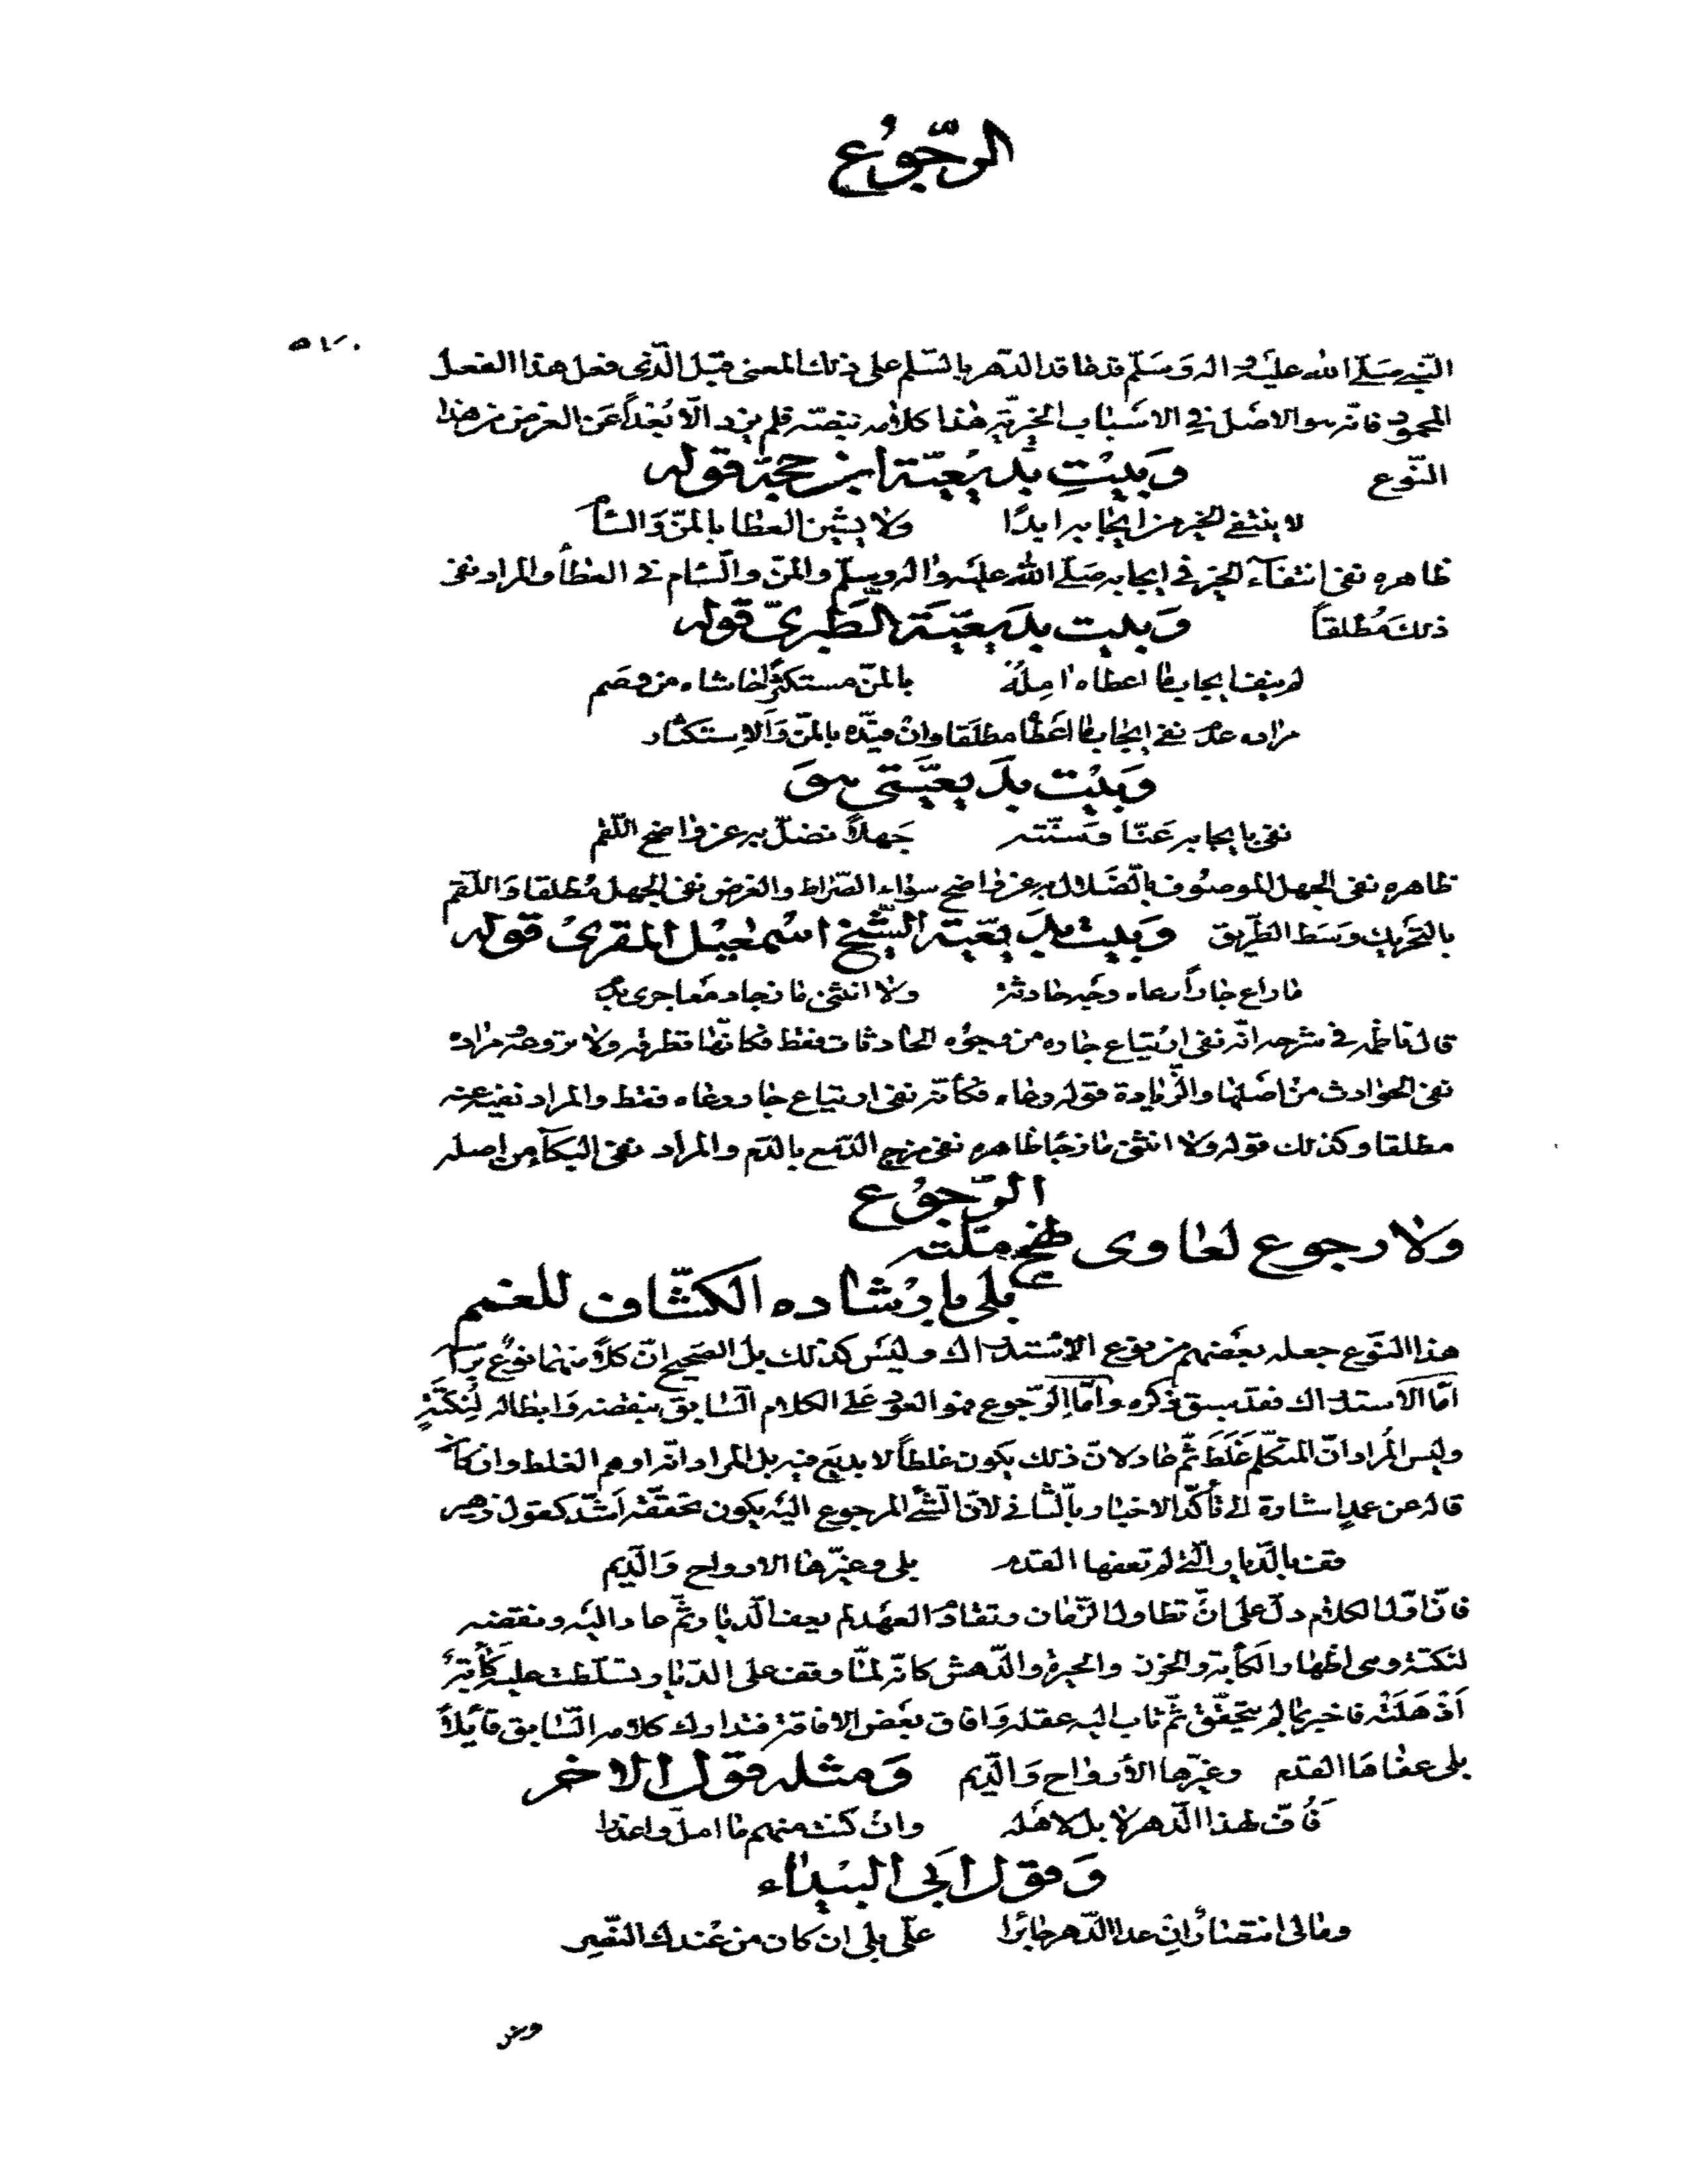 الرّجوُع
النّبي صَلّى الله عليْه واله وَسَلّم قد عاقد الدّهر بالسّلم على ذلك المعنى قبل الّذى فعل هذا الفعل
المحمود فانّه هو الاصْل في الاسْباب الخيريّة هٰذا كلامه بنصّه فلم يزد الّا بُعْداً عَن الغرض من هٰذا
النّوع وَبَيْتِ بَديْعيّة ابن حجّة قوله
لا ينتفى الخير من ايجابه ابدًا ولا يشين العطا بالمنّ وَالسّأم
ظاهره نفى انتفآء الخير في ايجابه صَلّى الله عليْه واله وسلّم والمنّ والسّام في العطأ والمراد نفى
ذلك مُطْلقاً وَبيت بدَيعيّة الطّبريّ قوله
لم ينف ايجاب ما اعطاه امِلُهُ بالمنّ مستكثرٌ حاشاه من وصَم
مراده نفى ايجاب ما اعْطٰا مطلقا وانْ قيّده بالمنّ وَالاِستكثار
وَبيْت بدَيعيّتى هوَ
نفى بايجابه عَنّا وسنّته جَهلاً نضلّ به عن واضح اللّقم
ظاهره نفى الجهل الموصوُف بالضّلال به عن واضح سوٰاء الصّراط والغرض نفى الجهل مُطلقا وَاللّقم
بالتحريك وسَط الطّريق وَبيْت بديعيّة الشّيخ اسْمٰعيْل المقرىْ قوله
ما راع جاراً رعاه وجه حادثة ولا انثنى
قال ناظمه في شرحه انّه نفى ارْتياع جاره من وجُوه الحادثات فقط فكانّها تطرقه ولا تروعه ومراده
نفى الحوٰادث منْ اصْلها والزّيادة قوله رعاه فكأنّه نفى ارتياع جار رعاه فقط والمراد نفيه عنه
مطلقا وكذلك قوله ولا انثنى مازجًا ظاهره نفى مزج الدّمع بالدّم والمراد نفى البكآء من اصله
الرّجوُع
وَلا رجوع لغاوى نهج ملّته
بلى بارْشاده الكشّاف للغمم
هذا النّوع جعله بعْضهم من نوع الاسْتدراك وليْس كذلك بل الصّحيح انّ كلاًّ منهما نوعٌ برأ
امّا الاستدراك فقد سبق ذكره وامّا الرّجوع فهو العوْد عَلى الكلام السّابق بنقضه وَابطاله لنكتةٍ
وليس المُراد انّ المتكلّم غَلَطَ ثمّ عاد لانّ ذلك يكون غلطاً لا بديع فيه بل المراد انّه اوهم الغلط وان كا
قاله عن عمدٍ اشارة الى تأكّد الاخبار بالثّاني لانّ الشّئ المرجوع اليْه يكون تحققّه اَشدّ كقول زهير
قف بالدّيار الّتى لم تعفها القدم بلى وغيّرها الارواح وَالدّيم
فانّ اوّل الكلام دلّ على انّ تطاول الزّمان وتقادُمَ العهْد لم يعف الدّيار ثمّ عاد اليْه ونقضه
لنكتة وهى اظهار الكأبة والحزن والحيرة والدّهش كانّه لمّا وقف على الدّيار تسلّطت عليْه كأبةٌ
اَذْهَلَتْه فاخبر بما لم يتحقّق ثمّ ثاب اليه عقله وَافاق بعْض الافاقة فتدارك كلامه السّابق قائلاً
بلى عفاهَا القدم وغيّرها الأروٰاح وَالدّيم وَمثله قول الاخر
فَاُفّ لهذا الدّهر لا بل لاهْله وانْ كنت منهم ما امل واعذرا
وَقول ابى البيْداء
ومالى انتصٰار اِنْ عدا الدّهر جائرا علىّ بلى ان كان منْ عندك النّصر